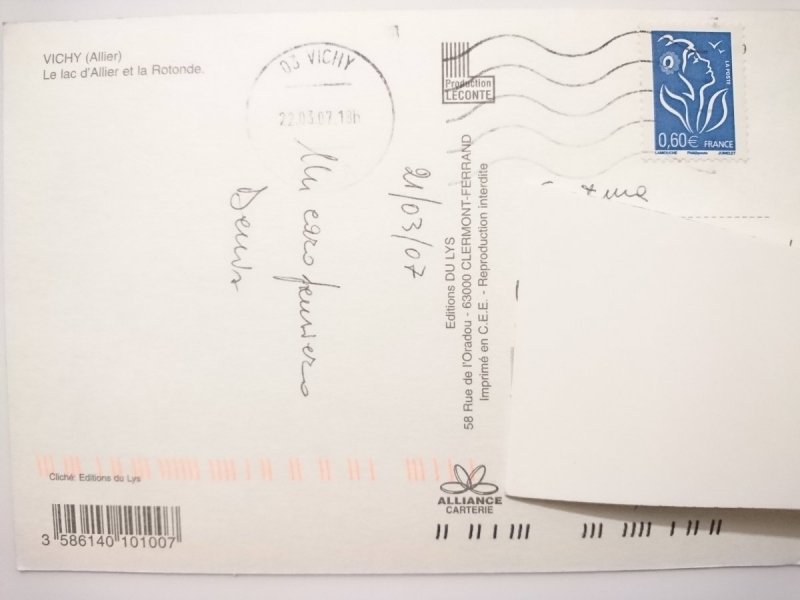 VICHY (Allier)
Le lac d'Allier et la Rotonde.
03 VICHY
22.03.07.18h
Production
LECONTE
LA POSTE
0,60€ FRANCE
LAMOUCHE Phil@poste JUMELET
21/03/07
Un caro pensiero
Denis
Editions DU LYS
58 Rue de l'Oradou - 63000 CLERMONT-FERRAND
Imprimé en C.E.E. - Reproduction interdite
Cliché: Editions du Lys
3 586140 101007
ALLIANCE
CARTERIE